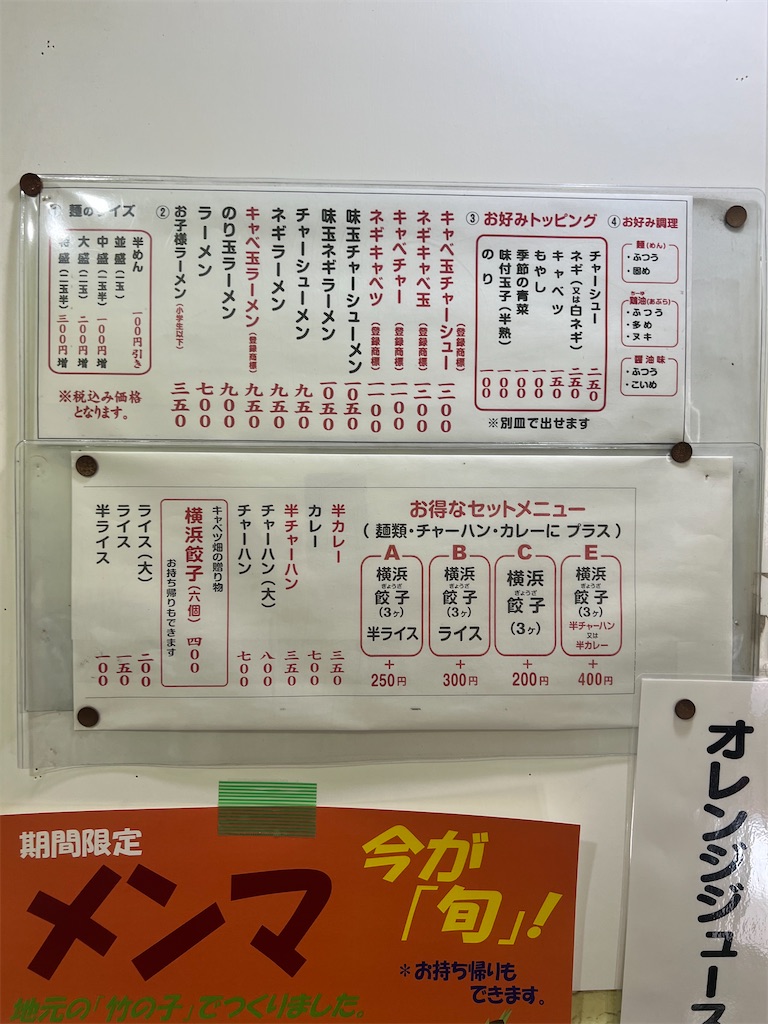 麺のサイズ
半めん 一00円引き
並盛(一玉)
中盛(一玉半) 一00円増
大盛(二玉) 二00円増
特盛(二玉半) 三00円増
※税込み価格
となります。
②
キャベ玉チャーシュー(登録商標)
ネギキャベ玉(登録商標)
キャベチャー(登録商標) 一一00
ネギキャベツ(登録商標) 一一00
味玉チャーシューメン 一0五0
味玉ネギラーメン 一0五0
チャーシューメン 九五0
ネギラーメン 九五0
キャベ玉ラーメン(登録商標) 九五0
のり玉ラーメン 九00
ラーメン 七00
お子様ラーメン(小学生以下) 三五0
③ お好みトッピング
チャーシュー 二五0
ネギ(又は白ネギ) 二五0
キャベツ 一五0
もやし 一00
季節の青菜 一00
味付玉子(半熟) 一00
のり 一00
※別皿で出せます
④ お好み調理
麺(めん)
・ふつう
・固め
鶏油(あぶら)
ちーゆ
・ふつう
・多め
・ヌキ
醤油味
・ふつう
・こいめ
お得なセットメニュー
(麺類・チャーハン・カレーに プラス)
A
横浜
餃子
ぎょうざ
(3ヶ)
半ライス
+
250円
B
横浜
餃子
ぎょうざ
(3ヶ)
ライス
+
300円
C
横浜
餃子
ぎょうざ
(3ヶ)
+
200円
E
横浜
餃子
ぎょうざ
(3ヶ)
半チャーハン
又は
半カレー
+
400円
半カレー 三五0
カレー 七00
半チャーハン 三五0
チャーハン(大) 八00
チャーハン 七00
キャベツ畑の贈り物
横浜餃子(六個) 四00
お持ち帰りもできます
ライス(大) 二00
ライス 一五0
半ライス 一00
期間限定
メンマ
今が
「旬」!
*お持ち帰りも
できます。
地元の「竹の子」でつくりました。
オレンジジュース